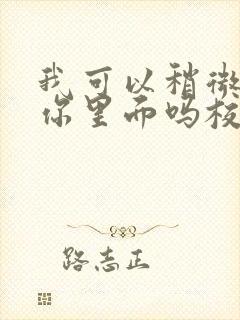 我可以稍微
你里而吗板
路志正